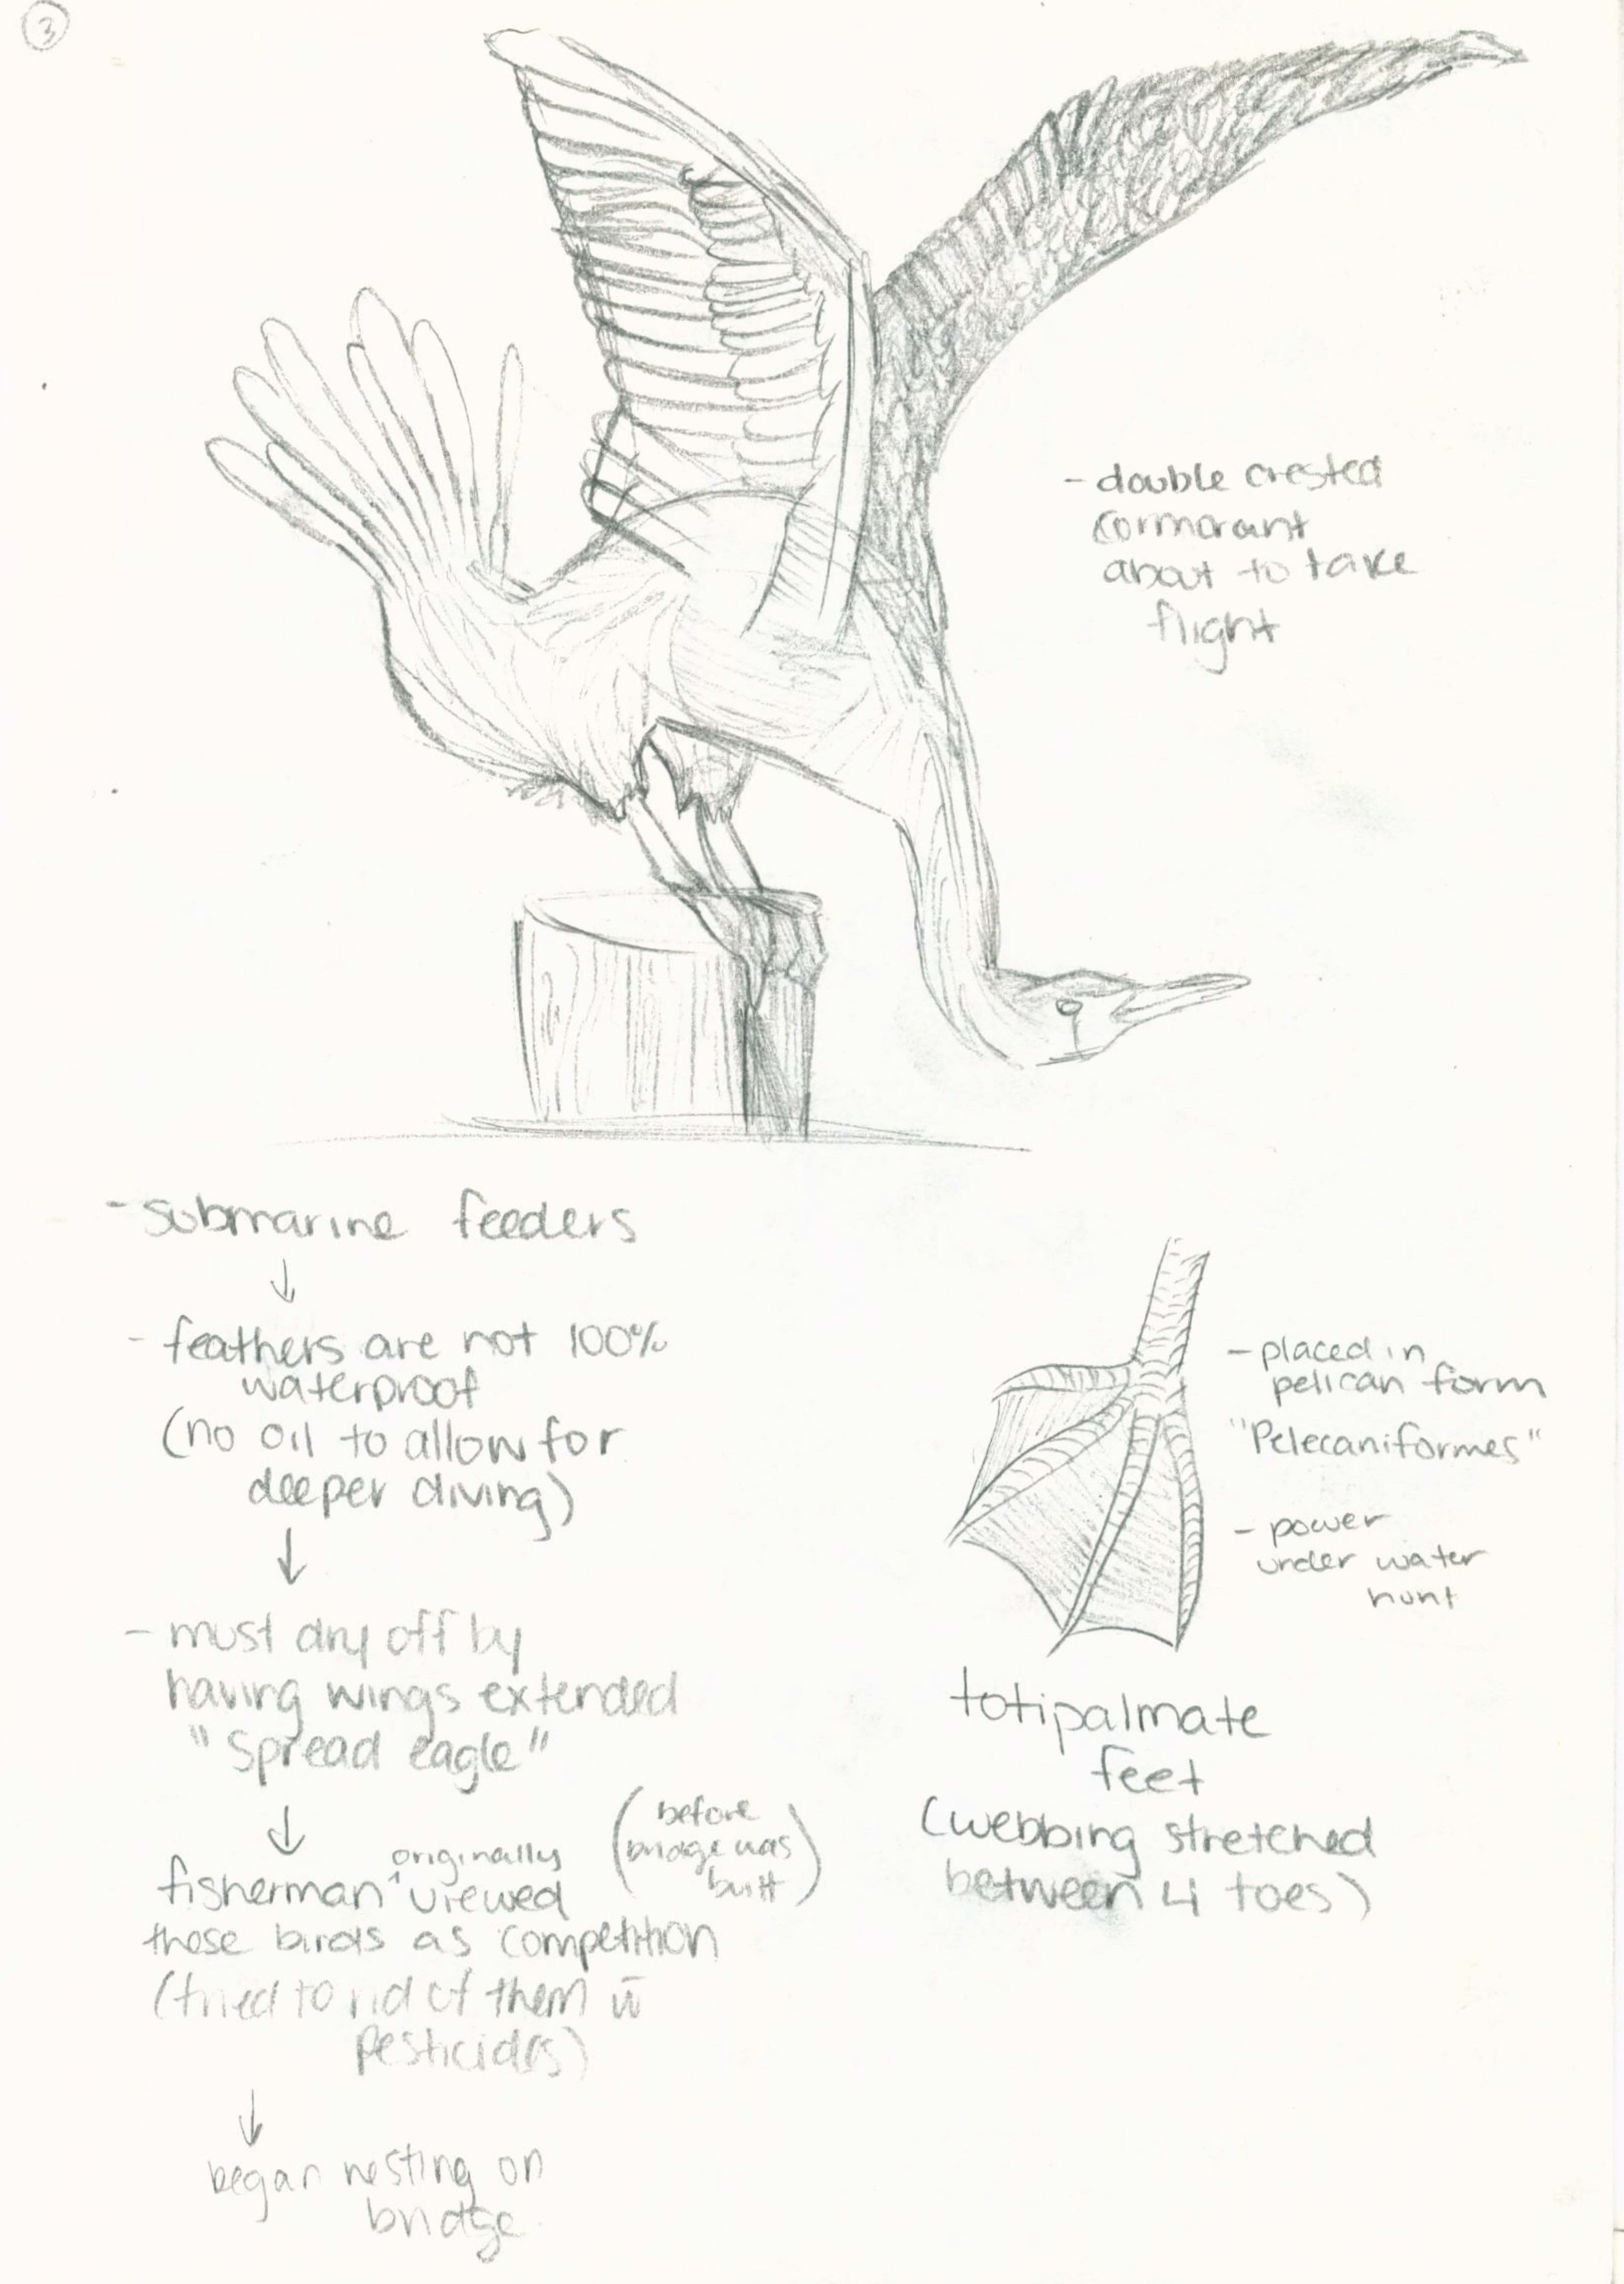 3
- double crested
cormorant
about to take
flight
- submarine feeders
↓
- feathers are not 100%
waterproof
(no oil to allow for
deeper diving)
↓
- must dry off by
having wings extended
"Spread eagle"
↓
(before
bridge was
built)
originally
fisherman ^ viewed
these birds as competition
(tried to rid of them w̄
pesticides)
↓
began nesting on
bridge
- placed in
pelican form
"Pelecaniformes"
- power
under water
hunt
totipalmate
feet
(webbing stretched
between 4 toes)